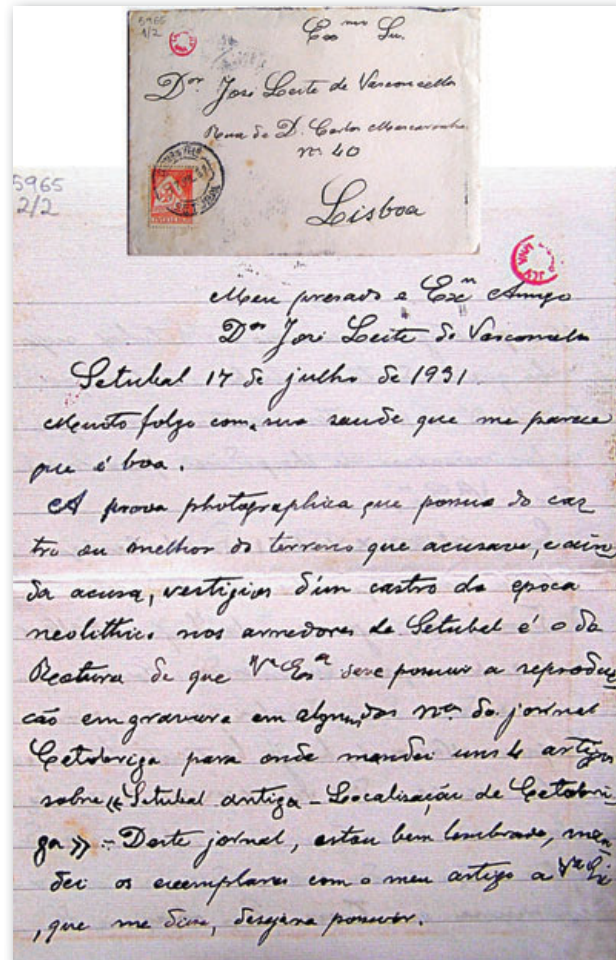 5965
1/2
Exmo Snr.
Dor José Leite de Vasconcellos
Rua de D. Carlos Mascarenhas
nº 40
Lisboa
5965
2/2
Meu presado e Exmo Amigo
Dor José Leite de Vasconcellos
Setubal 17 de julho de 1931
Muito folgo com sua saude que me parece
que é boa.
A prova photographica que possuo do cas
tro ou melhor do terreno que acusava, e ain
da acusa, vestigios d'um castro da epoca
neolithica nos arredores de Setubal é o da
Rotura de que Va Exa deve possuir a reprodu
ção em gravura em alguns dos nos do jornal
Cetobriga para onde mandei uns 4 artigos
sobre « Setubal antiga - Localisação de Cetobri
ga » - Deste jornal, estou bem lembrado, man
dei os exemplares com o meu artigo a Va Ex
, que me disse, desejava possuir.